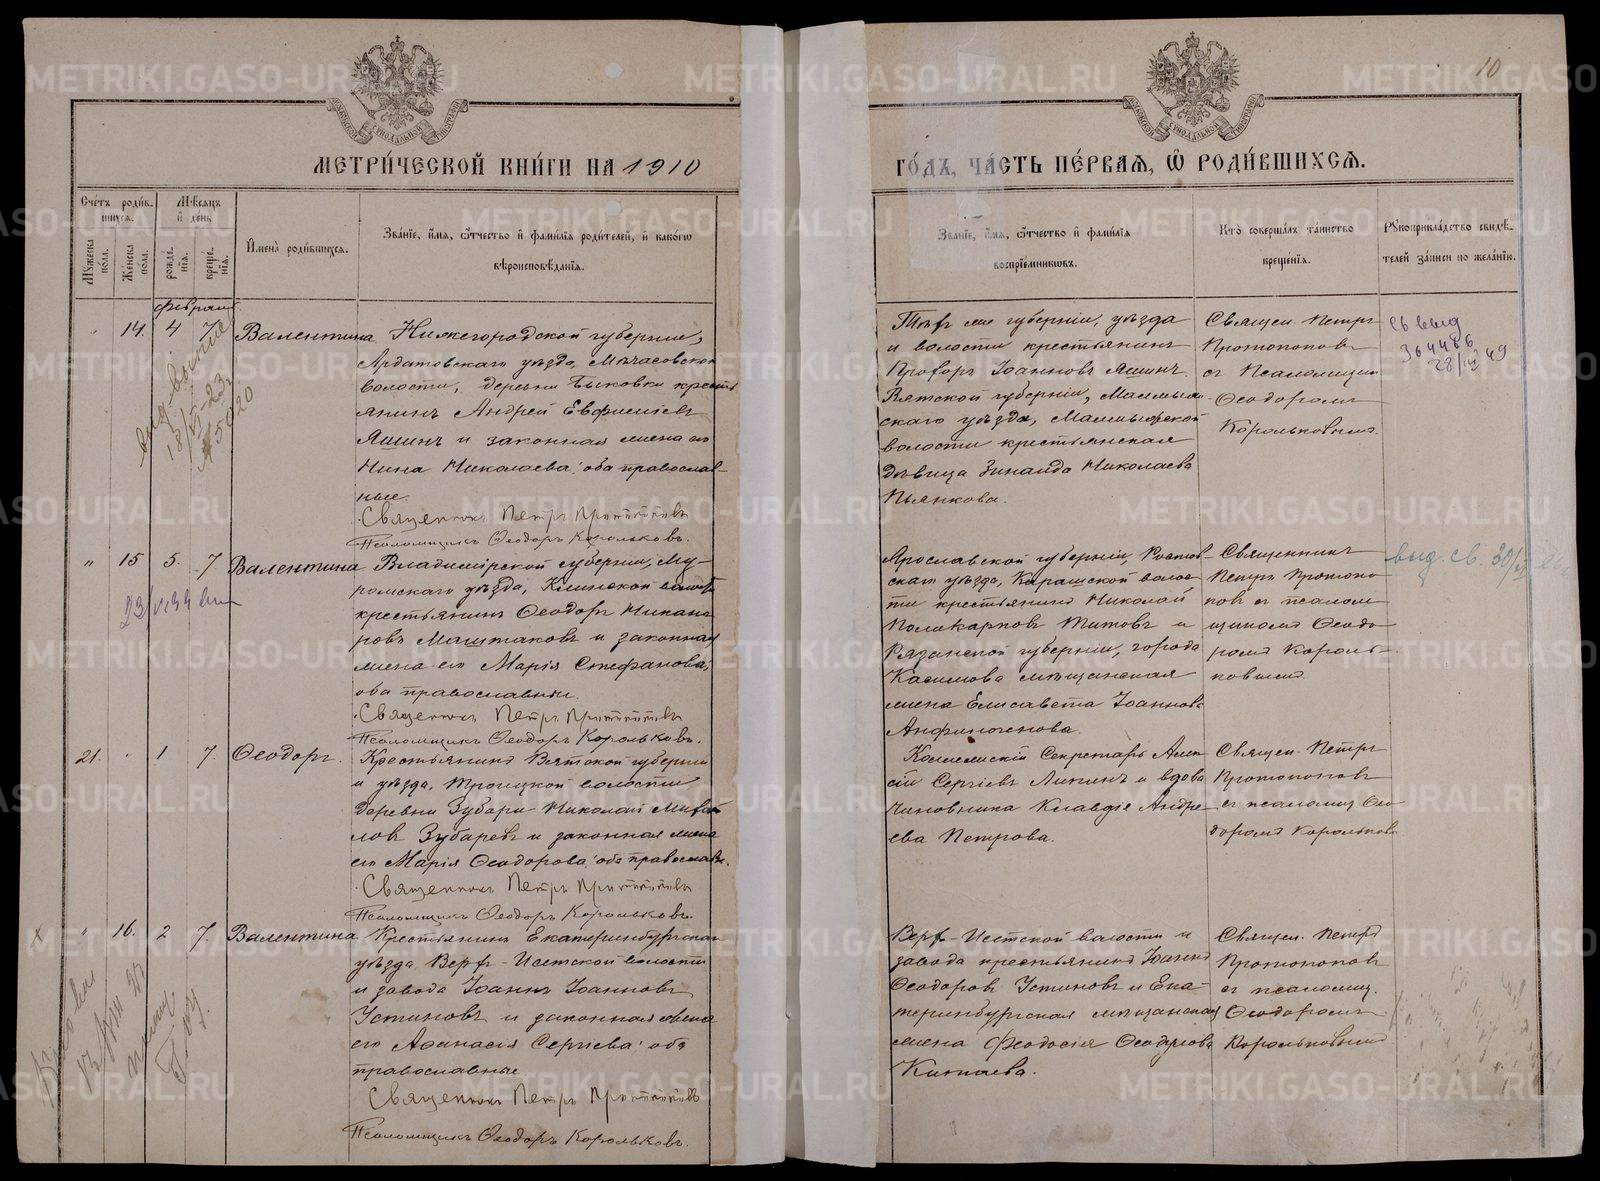 METRIKI.GASO-URAL.RU
10
МЕТРИ́ЧЕСКОЙ КНИ́ГИ НА 1910
ГО́ДЪ, ЧА́СТЬ ПЕ́РВАѦ, Ѡ РОДИ́ВШИХСѦ.
Счетъ роди́вшихся.
Мѣсяцъ и день
Мужеска пола.
Женска пола.
рожденія.
крещенія.
Имена родившихся.
Званіе, имя, отчество и фамилія родителей, и какого
вѣроисповѣданія.
Званіе, имя, отчество и фамилія
воспріемниковъ.
Кто совершалъ таинство
крещенія.
Рукоприкладство свидѣтелей записи по желанію.
Февраль
14. 4 7 Валентина
Нижегородской губерніи,
Ардатовскаго уѣзда,
волости, деревни Быковки крестьянинъ Андрей Евфиміевъ
Яшинъ и законная жена его
Нина Николаева: оба православные.
Священникъ Петръ Протопоповъ
Псаломщикъ Ѳеодоръ Корольковъ.
Той же губерніи, уѣзда
и волости крестьянинъ
Іоанновъ Яшинъ.
Вятской губерніи, Малмыжскаго уѣзда, Малмыжской
волости крестьянская
дѣвица Зинаида Николаева
Пьянкова.
Священ. Петръ
Протопоповъ
съ Псаломщикомъ
Ѳеодоромъ
Корольковымъ.
св выд
364486
" 15 5. 7 Валентина
Владимірской губерніи, Муромскаго уѣзда, Климской волости
крестьянинъ Ѳеодоръ Никаноровъ Маштаковъ и законная
жена его Марія Стефанова,
оба православные.
Священникъ Петръ Протопоповъ
Псаломщикъ Ѳеодоръ Корольковъ.
Ярославской губерніи, Ростовскаго уѣзда, Карашской волости крестьянинъ Николай
Поликарповъ Титовъ и
Рязанской губерніи, города
Касимова мѣщанская
жена Елисавета Іоаннова
Анфиногенова.
Священникъ
Петръ Протопоповъ съ псаломщикомъ Ѳеодоромъ Корольковымъ.
выд. св. 30/
21. " 1 7. Ѳеодоръ.
Крестьянинъ Вятской губерніи
и уѣзда, Троицкой волости
деревни Зубари Николай
Зубаревъ и законная жена
его Марія Ѳеодорова: оба православн.
Священникъ Петръ Протопоповъ
Псаломщикъ Ѳеодоръ Корольковъ.
Секретарь Алексій Сергіевъ Липинъ и вдова
чиновника Клавдіе Андреева Петрова.
Священ. Петръ
Протопоповъ
съ псаломщ. Ѳеодоромъ Корольковы
" 16. 2 7. Валентина
Крестьянинъ Екатеринбургскаго
уѣзда Верх-Исетской волости
и завода Іоаннъ Іоанновъ
Устиновъ и законная жена
его Аѳанасія Сергіева: оба
православные
Священникъ Петръ Протопоповъ
Псаломщикъ Ѳеодоръ Корольковъ.
Верх-Исетской волости и
завода крестьянинъ Іоаннъ
Ѳеодоровъ Устиновъ и Екатеринбургская мѣщанская
жена Феодосія Ѳеодорова
Китаева.
Священ. Петръ
Протопоповъ
съ псаломщ.
Ѳеодоромъ
Корольковымъ